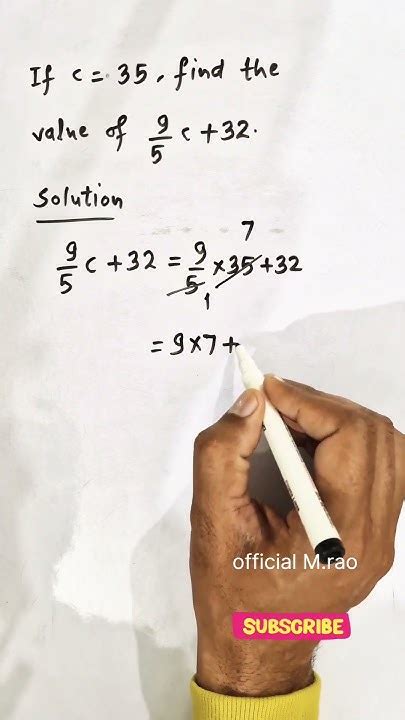 If c = 35, find the
value of 9/5 c + 32.
Solution
7
9/5 c + 32 = 9/5 × 35 + 32
1
= 9 × 7 +
official M.rao
SUBSCRIBE